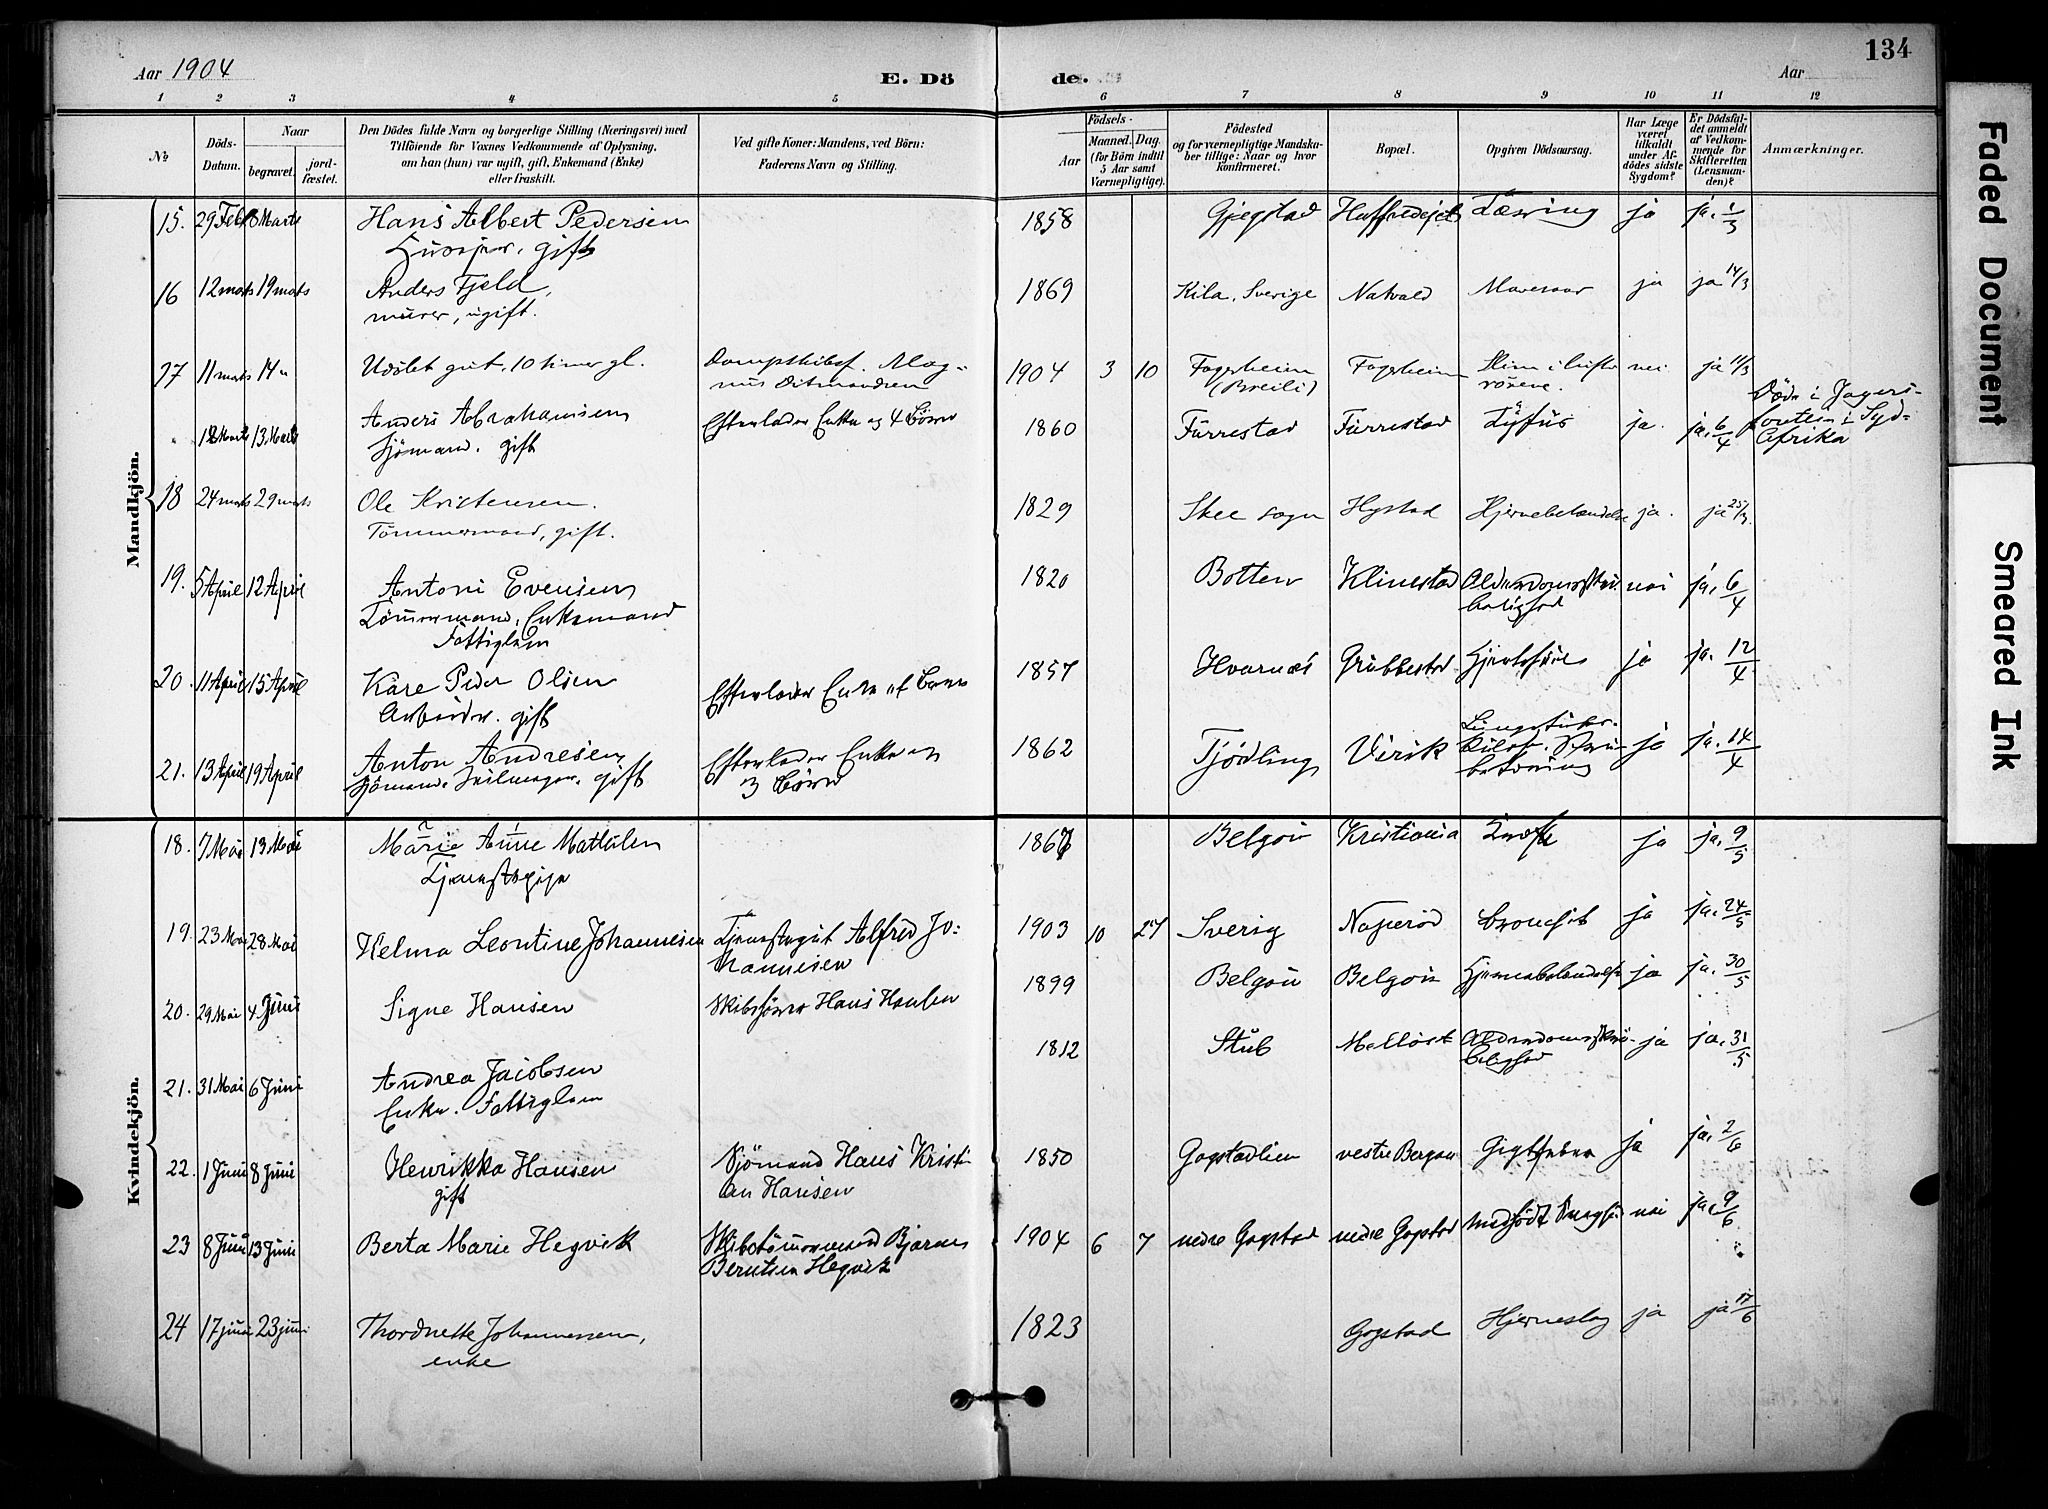 134
Aar 1904
E. Dö
de.
Aar
1 2 3 4 5 6 7 8 9 10 11 12
№
Döds-
Datum.
Naar
begravet.
jord-
fæstet.
Den Dödes fulde Navn og borgerlige Stilling (Næringsvei) med
Tilföiende for Voxnes Vedkommende af Oplysning,
om han (hun) var ugift, gift, Enkemand (Enke)
eller fraskilt.
Ved gifte Koner: Mandens, ved Börn:
Faderens Navn og Stilling.
Födsels-
Aar
Maaned. Dag.
(for Börn indtil
5 Aar samt
Værnepligtige).
Födested
og for værnepligtige Mandska-
ber tillige: Naar og hvor
konfirmeret.
Bopæl.
Opgiven Dödsaarsag.
Har Læge
været
tilkaldt
under Af-
dödes sidste
Sygdom?
Er Dödsfal-
det anmeldt
af Vedkom-
mende for
Skifteretten
(Lensman-
den)?
Anmærkninger.
Mandkjön.
15. 29 Febr 8 Marts Hans Albert Pedersen 1858 Gjegstad Tæring ja ja. 1/3
gift
16 12 mars 19 mars Anders Fjeld, 1869 Kila, Sverige Natvald ja ja 14/3
murer, ugift.
17 11 mars 14 " Udöbt gut, 10 timer gl. 1904 3 10 Fogerheim Fogerheim Slim i lufte nei ja 11/3
nus Ditmandsen (Breili) rörene.
Död i Jagers-
Anders Abrahamsen
" 12 Marts 13 Marts Efterlader Enke og 4 Börn 1860 Furrestad Furrestad Tyfus ja. ja. 6/4 fontein i Syd-
Sjömand. gift Afrika
18 24 mars 29 mars Ole Kristensen. 1829 Skee sogn Hystad Hjernebetændelse ja. ja 25/3
Tömmermand, gift.
19. 5 April 12 April Antoni Evensen 1820 Botten Klinestad nei ja. 6/4
Tömmermand. Enkemand
Fattiglem
20. 11 April 15 April Kare Peder Olsen 1857 Hvarnæs Grubbestad ja ja. 12/4
Arbeider. gift Efterlader Enke
21. 13 April 19 April Anton Andresen Efterlader Enke og 1862 Tjödling Virik ja ja. 14/4
Sjömand. gift 3 Börn
Kvindekjön.
18. 7 Mai 13 Mai Marie Anne Mathilen 1867 Belgöu Kristiania ja ja. 9/5
Tjenestepige
19. 23 Mai 28 Mai Helma Leontine Johannesen Tjenestegut Alfred Jo- 1903 10 27 Sverig ja ja. 24/5
hannesen
20. 29 Mai 4 Juni Signe Hansen Skibsförer Hans Hansen 1899 Belgöu Belgöu ja ja. 30/5
21. 31 Mai 6 Juni Andrea Jacobsen 1812 Stub ja ja. 31/5
Enke. Fattiglem
22. 1 Juni 8 Juni Henrikka Hansen Sjömand Hans Kristi 1850 Gogstadlien vestre Bergan Gigtfeber ja ja. 2/6
gift an Hansen
23 8 Juni 13 Juni Berta Marie Hegvik Skibstömmermand Bjarne 1904 6 7 nedre Gogstad nedre Gogstad nei ja. 9/6
Berntsen Hegvik
24 17 juni 23 juni Thordnette Johannessen, 1823 Gogstad Hjerneslag ja ja 17/6
enke
Faded Document
Smeared Ink